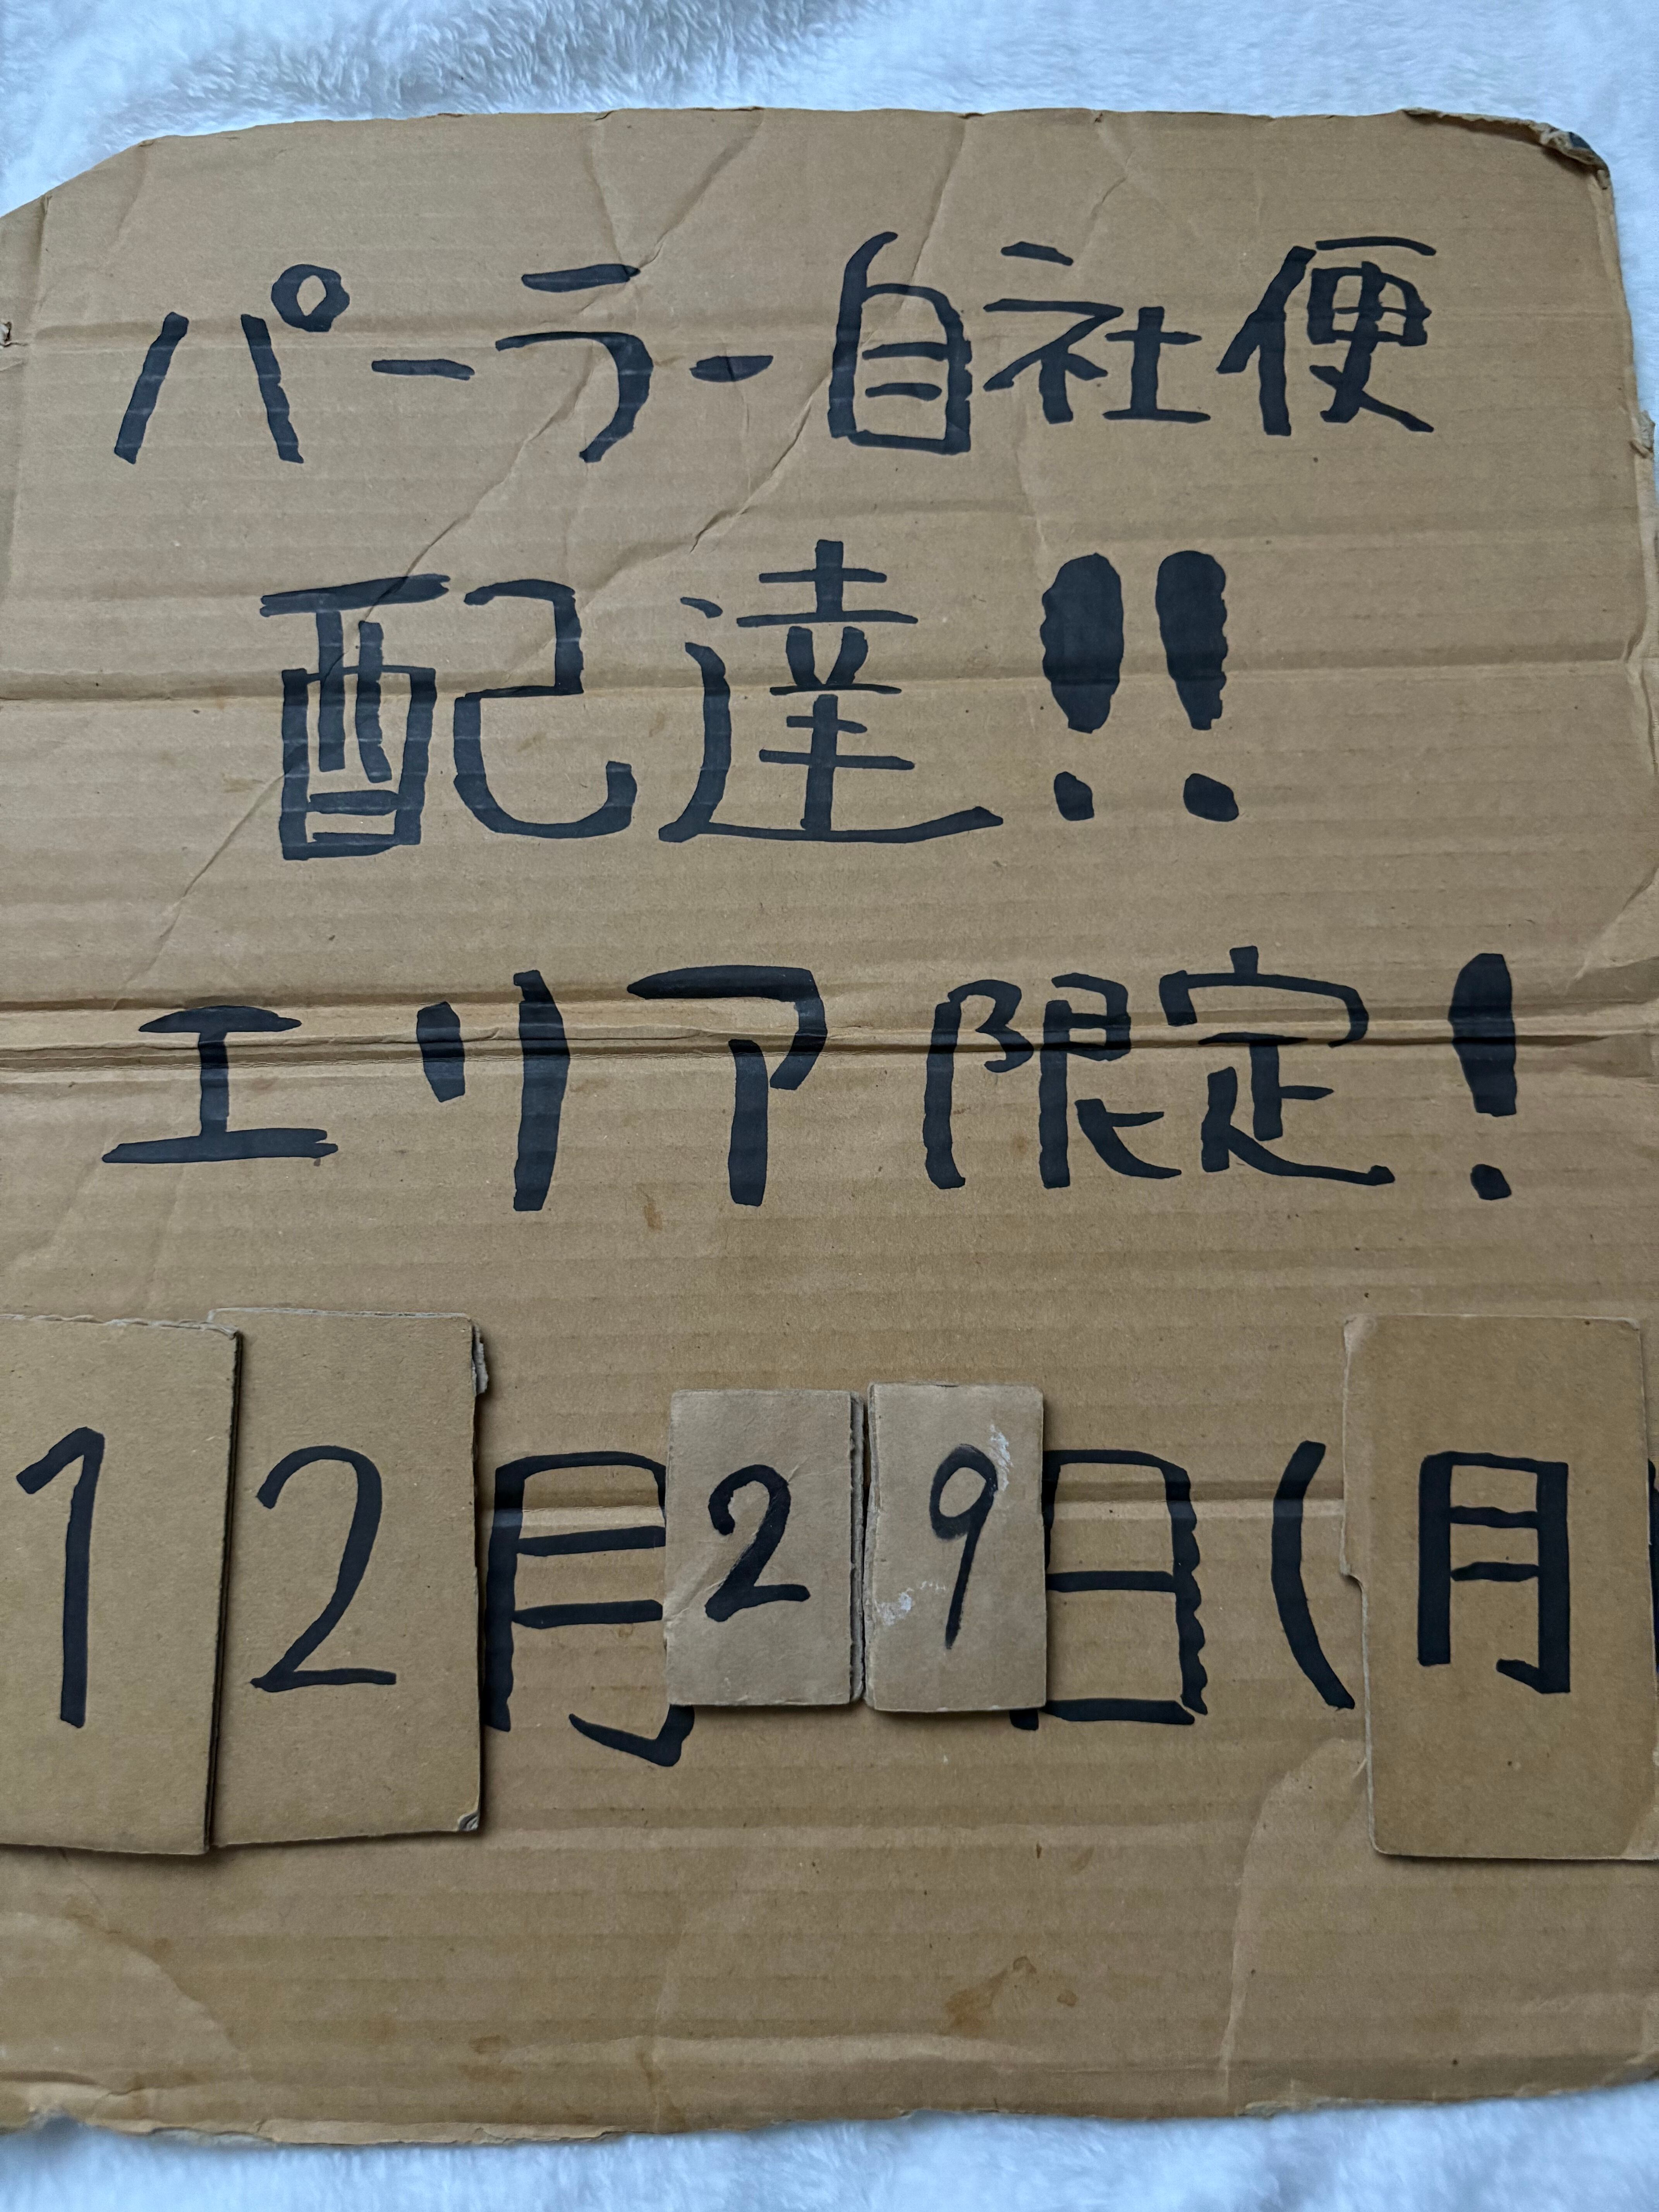 パーラー自社便
配達!!
エリア限定!
12月29日(月